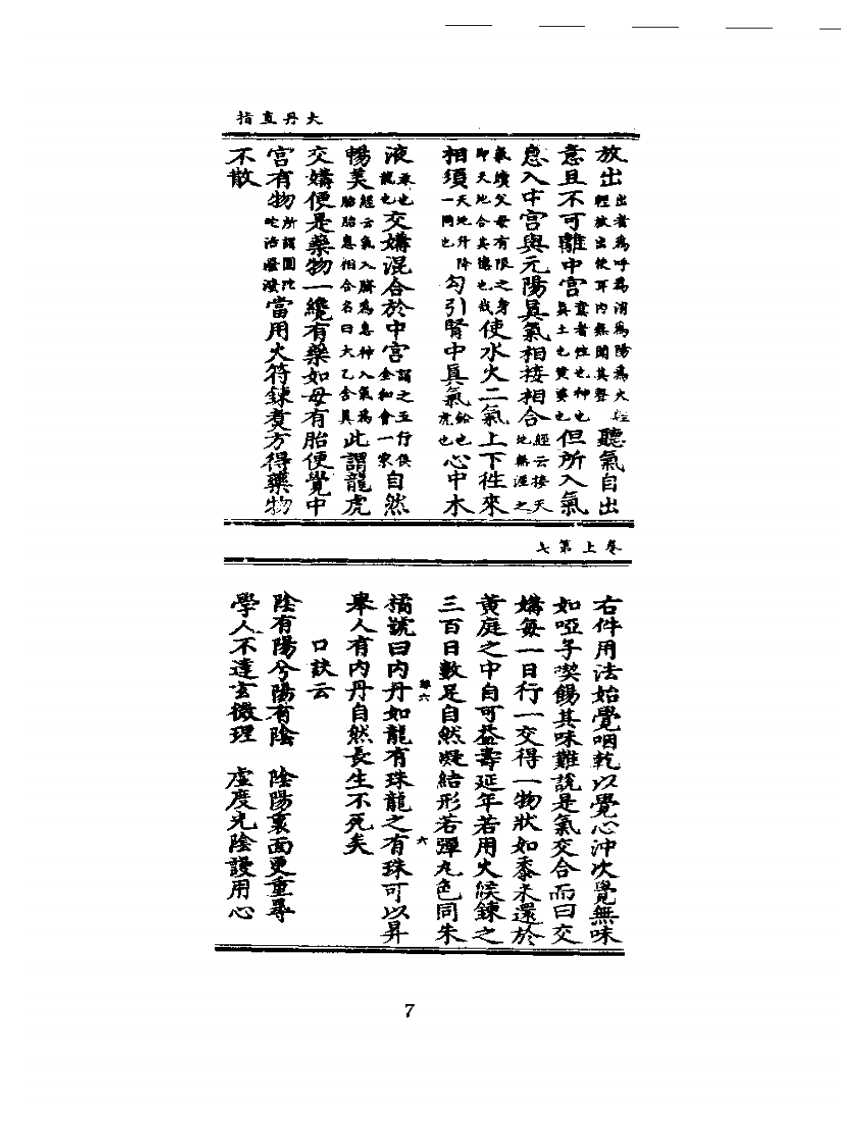 大丹直指
放出出者為呼為消為陽為火輕輕放出使耳內無聞其聲聽氣自出
意且不可離中宮意者性也神也真土也黃婆也但所入氣
息入中宮與元陽真氣相接相合經云接天地無涯之
氣續父母有限之身即天地合其德也哉使水火二氣上下往來
相須天地升降一同也勾引腎中真氣鉛也虎也心中木
液汞也龍也交媾混合於中宮謂之五行俱全和會一家自然
暢美經云氣入臍為息神入氣為胎胎息相合名曰大乙含真此謂龍虎
交媾便是藥物一纔有藥如母有胎便覺中
宮有物所謂團陀陀活潑潑當用火符鍊煑方得藥物
不散
卷上第七
右件用法始覺咽乾以覺心沖次覺無味
如啞子喫餳其味難説是氣交合而曰交
媾每一日行一交得一物狀如黍米還於
黃庭之中自可益壽延年若用火候鍊之
三百日數足自然凝結形若彈丸色同朱
六
六
橘號曰內丹如龍有珠龍之有珠可以昇
舉人有內丹自然長生不死矣
口訣云
陰有陽兮陽有陰 陰陽裏面更重尋
學人不達玄微理 虛度光陰謾用心
7